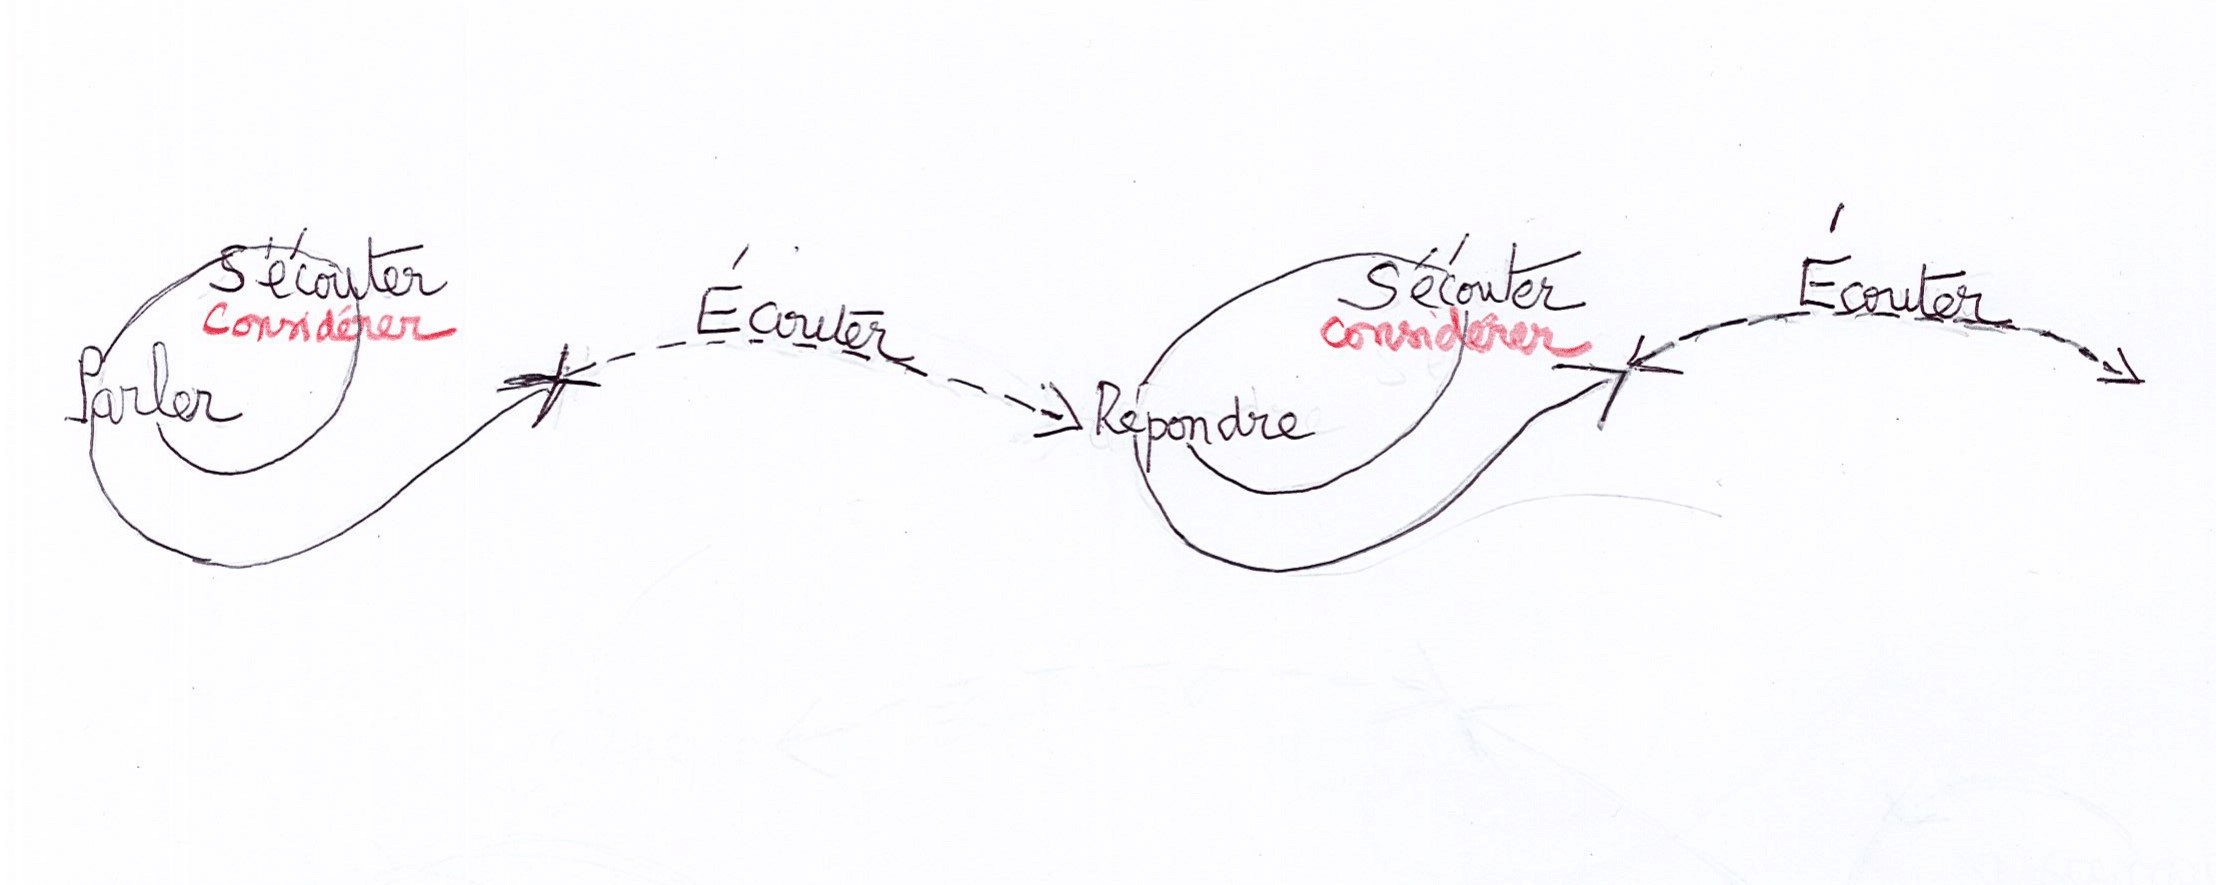 S'écouter
Considérer
Parler
Écouter
S'écouter
considérer
Répondre
Écouter